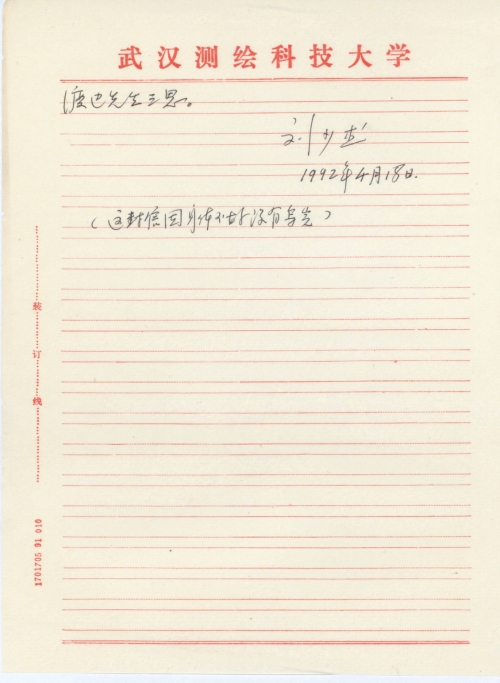 武汉测绘科技大学
渡边先生三思。
刘少
1992年4月18日.
(这封信因身体不好没有写完)
装订线
1701705 91 010